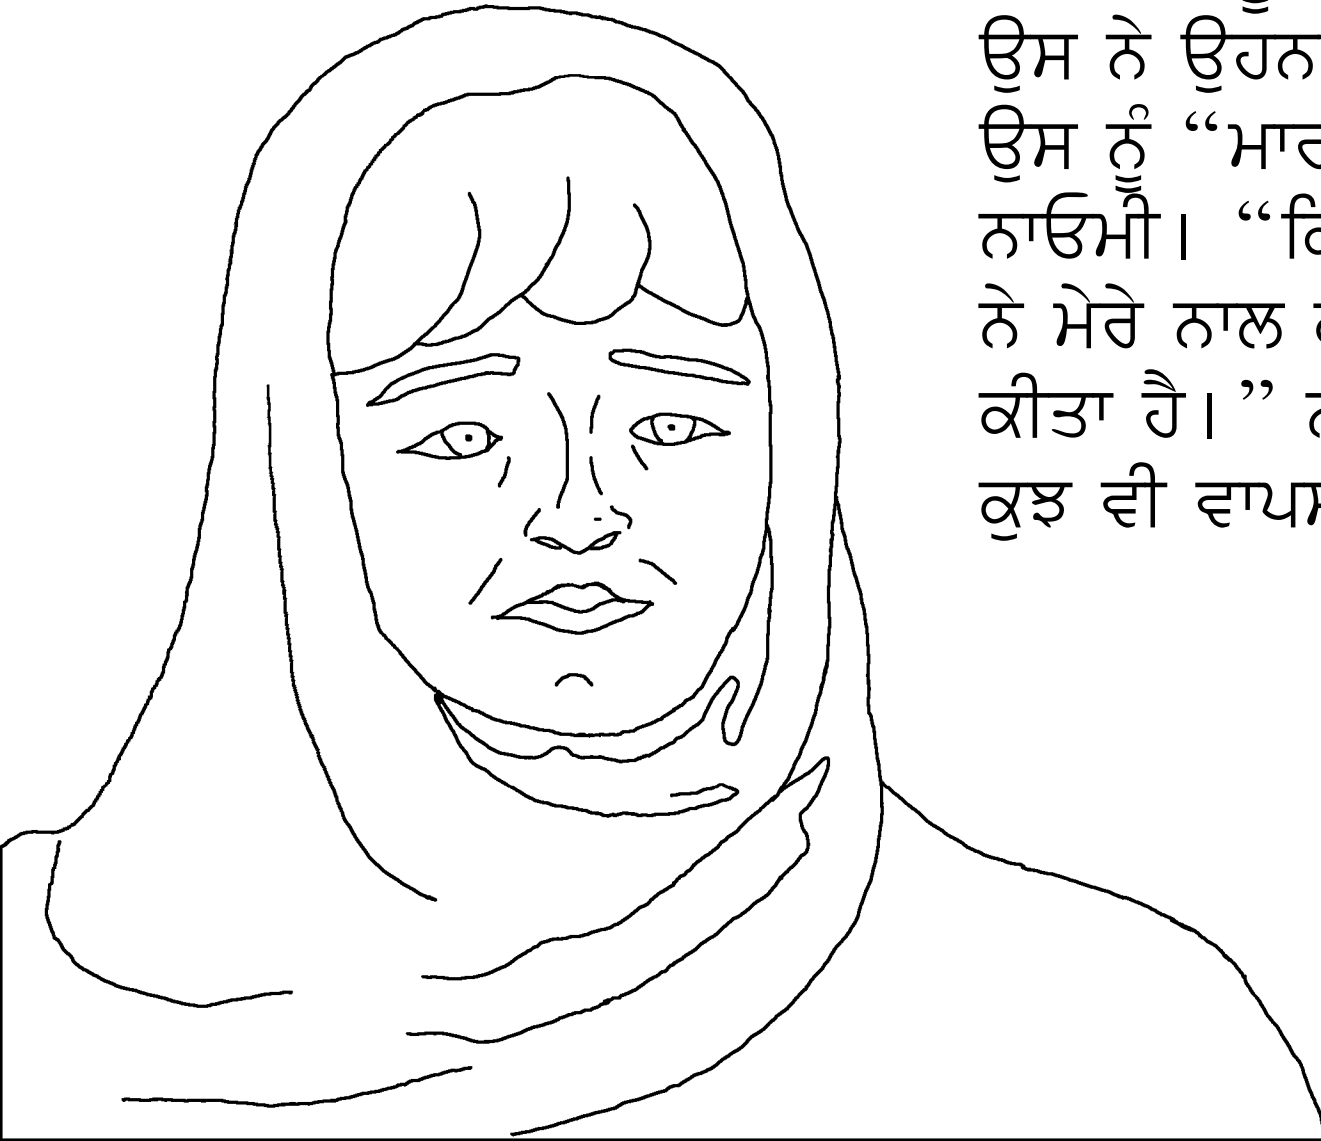 ਉਸ ਨੇ ਉਹਨ
ਉਸ ਨੂੰ “ਮਾਰ
ਨਾਓਮੀ। “ਕਿ
ਨੇ ਮੇਰੇ ਨਾਲ
ਕੀਤਾ ਹੈ।”
ਕੁਝ ਵੀ ਵਾਪਸ